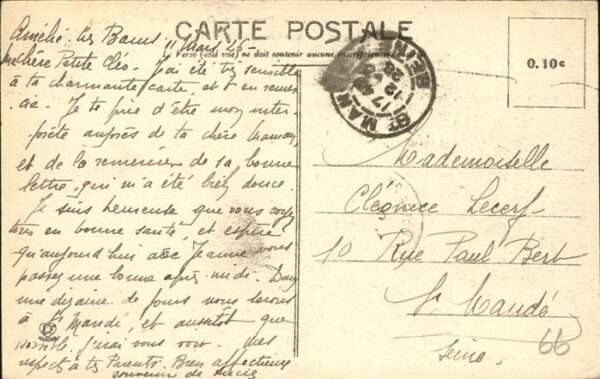 CARTE POSTALE
Verso (côté vue) ne doit contenir aucune inscription
Amélie les Bains 11 Mars 25
Ma chère Petite Cléo - J'ai été très sensible
à ta charmante carte, et t'en remer
cie. Je te prie d'être mon inter-
prète auprès de ta chère Maman,
et de la remercier de sa bonne
lettre qui m'a été bien douce.
Je suis heureuse que vous soyez
tous en bonne santé et espère
qu'aujourd'hui avec Jeanne vous
passez une bonne après-midi. Dans
une dizaine de jours nous serons
à St Mandé, et aussitôt que
possible j'irai vous voir. Mes
respects à tes Parents. Bien affectueux
souvenir de
ST MAN
17
12
0.10c
Mademoiselle
Cléonice Lecerf
10 Rue Paul Bert
St Mandé
Seine.
66